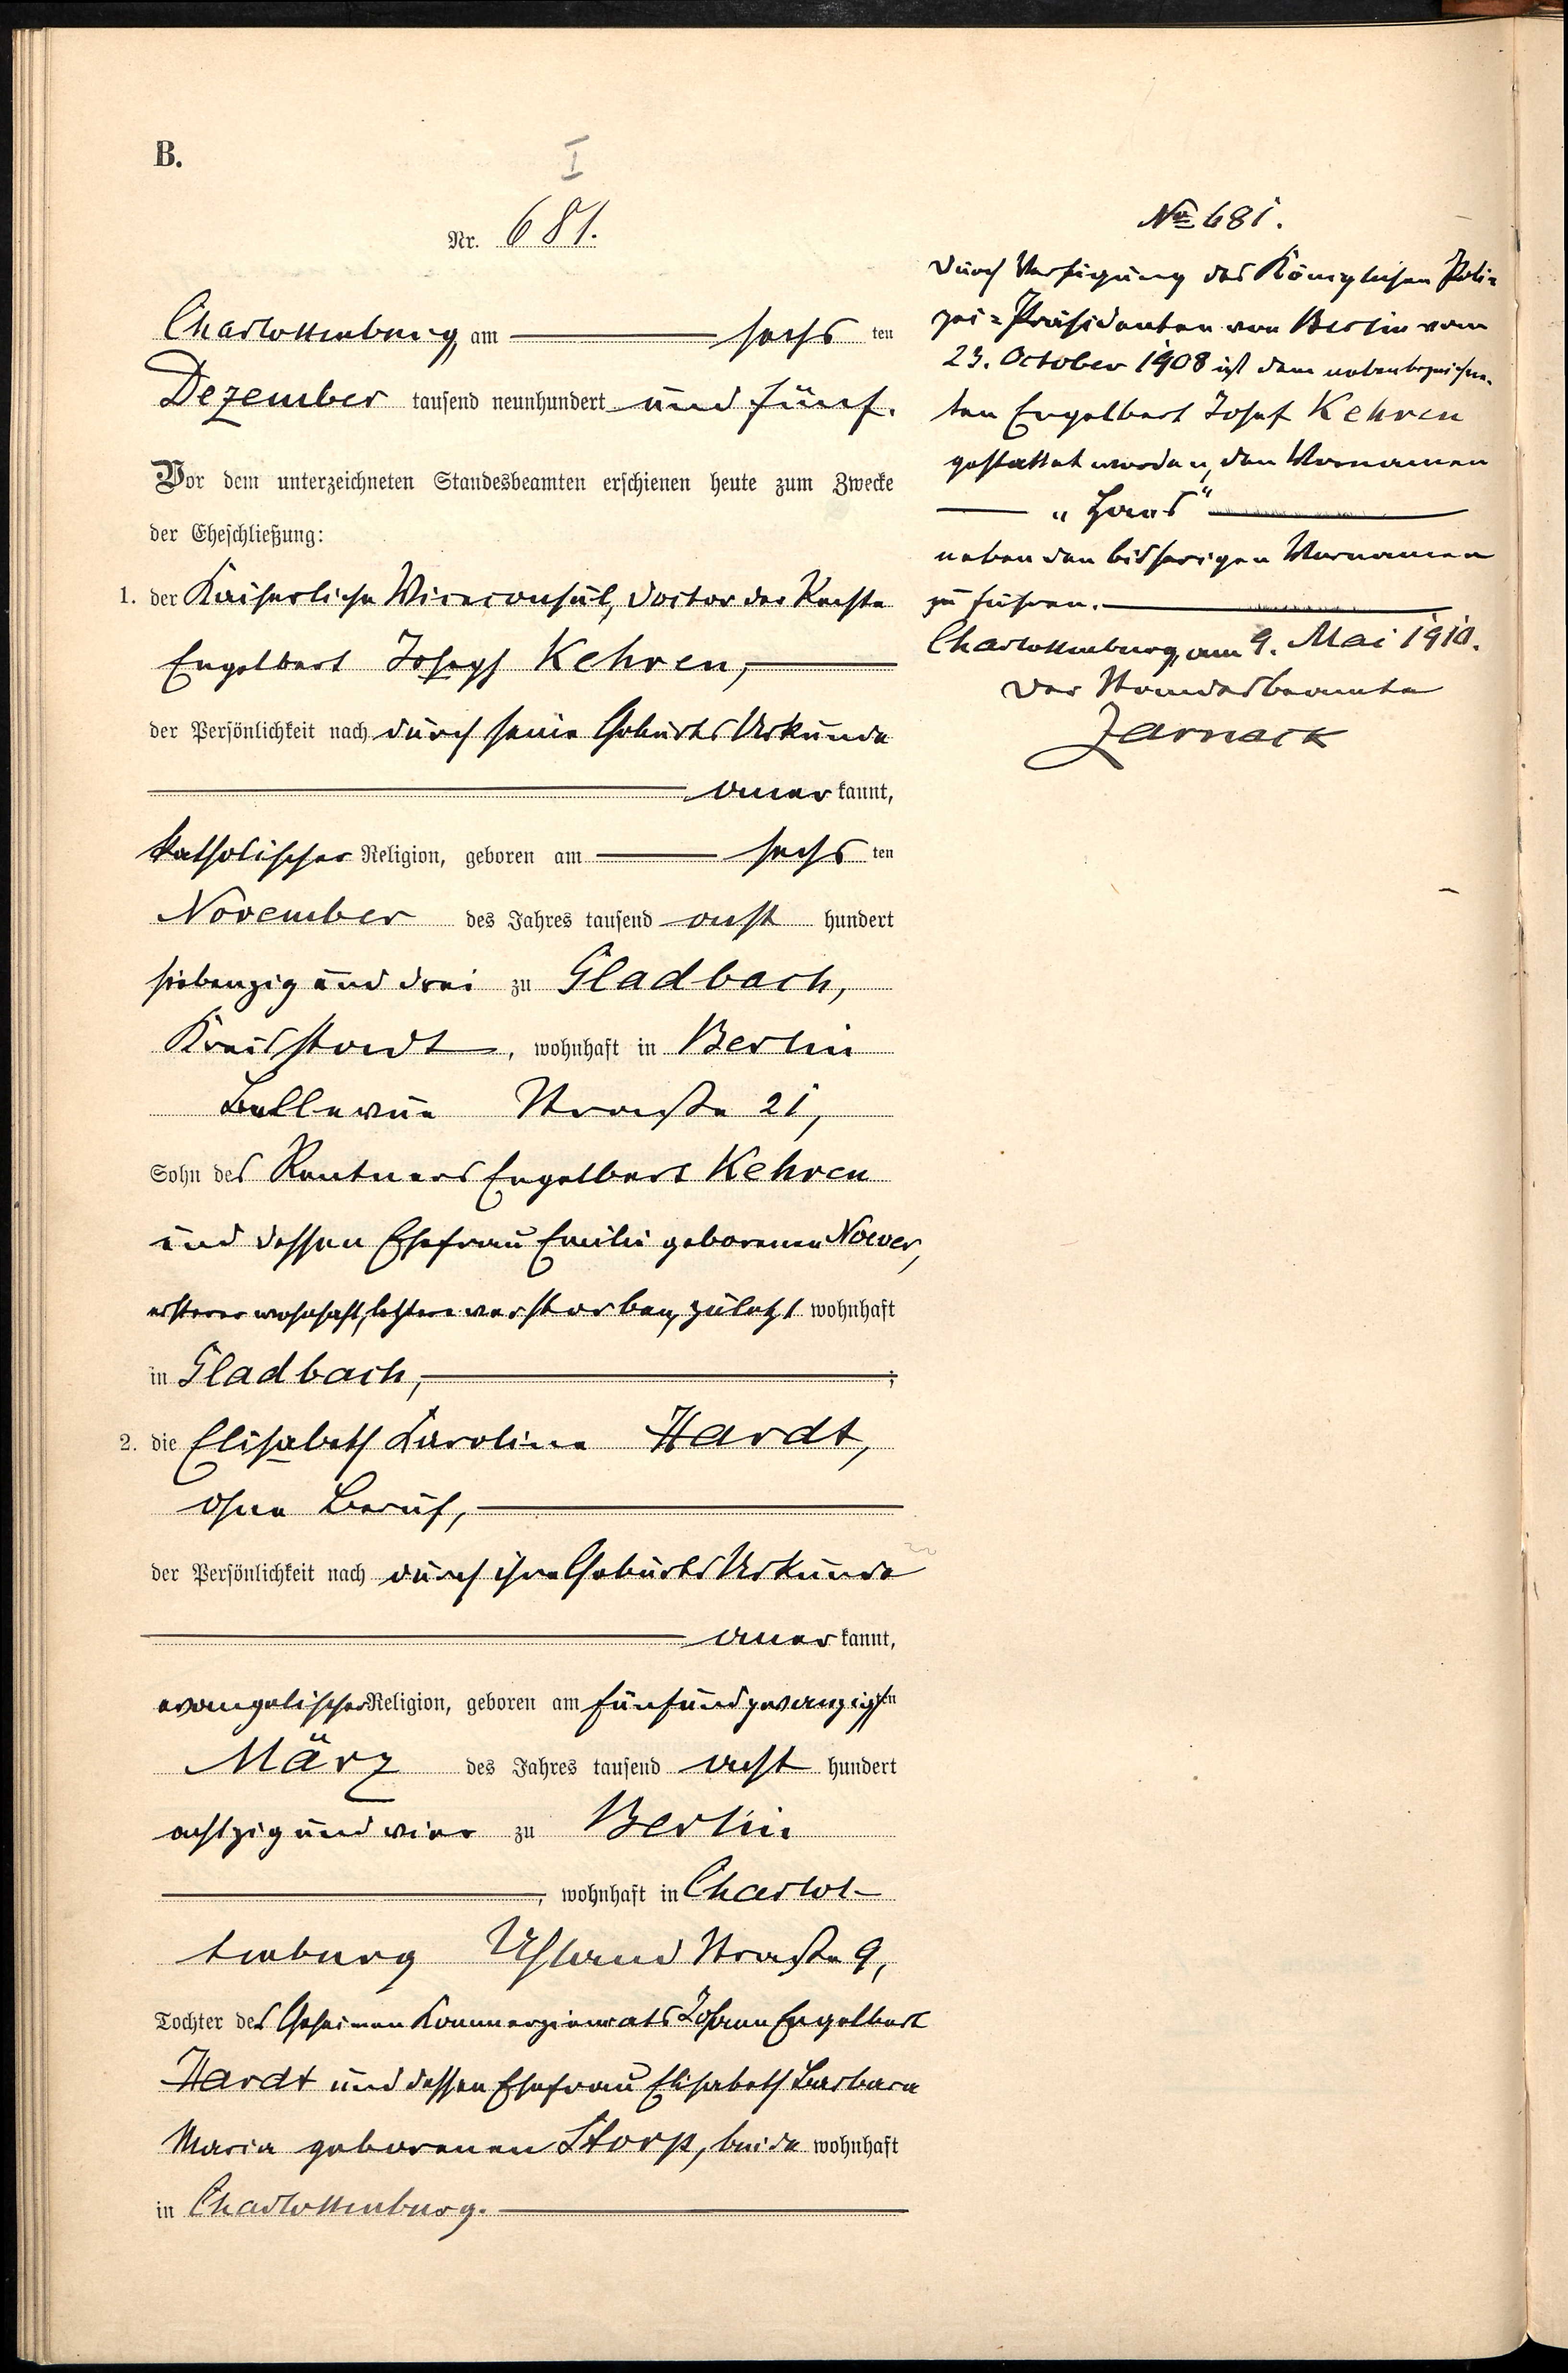 B.
I
Nr. 681.
Charlottenburg am sechs ten
Dezember tausend neunhundert und fünf.
Vor dem unterzeichneten Standesbeamten erschienen heute zum Zwecke
der Eheschließung:
1. der Kaiserliche Viceconsul, Doctor der Rechte
Engelbert Joseph Kehren,
der Persönlichkeit nach durch seine Geburts Urkunde
aner kannt,
katholischer Religion, geboren am sechs ten
November des Jahres tausend acht hundert
siebenzig und drei zu Gladbach,
Kreis Stadt, wohnhaft in Berlin
Bellevue Straße 21,
Sohn des Rentners Engelbert Kehren
und dessen Ehefrau Emilie geborenen Nower,
ersterer wohnhaft, letztere verstorben, zuletzt wohnhaft
in Gladbach, ;
2. die Elisabeth Karoline Hardt,
ohne Beruf,
der Persönlichkeit nach durch ihre Geburts Urkunde
aner kannt,
evangelischer Religion, geboren am fünfundzwanzigsten
März des Jahres tausend acht hundert
achtzig und vier zu Berlin
, wohnhaft in Charlot-
tenburg Uhland Straße 9,
Tochter des Geheimen Kommerzienrats Johann Engelbert
Hardt und dessen Ehefrau Elisabeth Barbara
Maria geborenen Storp, beide wohnhaft
in Charlottenburg.
No 681.
Durch Verfügung des Königlichen Poli-
zei-Präsidenten von Berlin vom
23. October 1908 ist dem nebenbezeichne-
ten Engelbert Josef Kehren
gestattet worden, den Vornamen
"Hans"
neben den bisherigen Vornamen
zu führen.
Charlottenburg, am 9. Mai 1910.
Der Standesbeamte
Zarnack